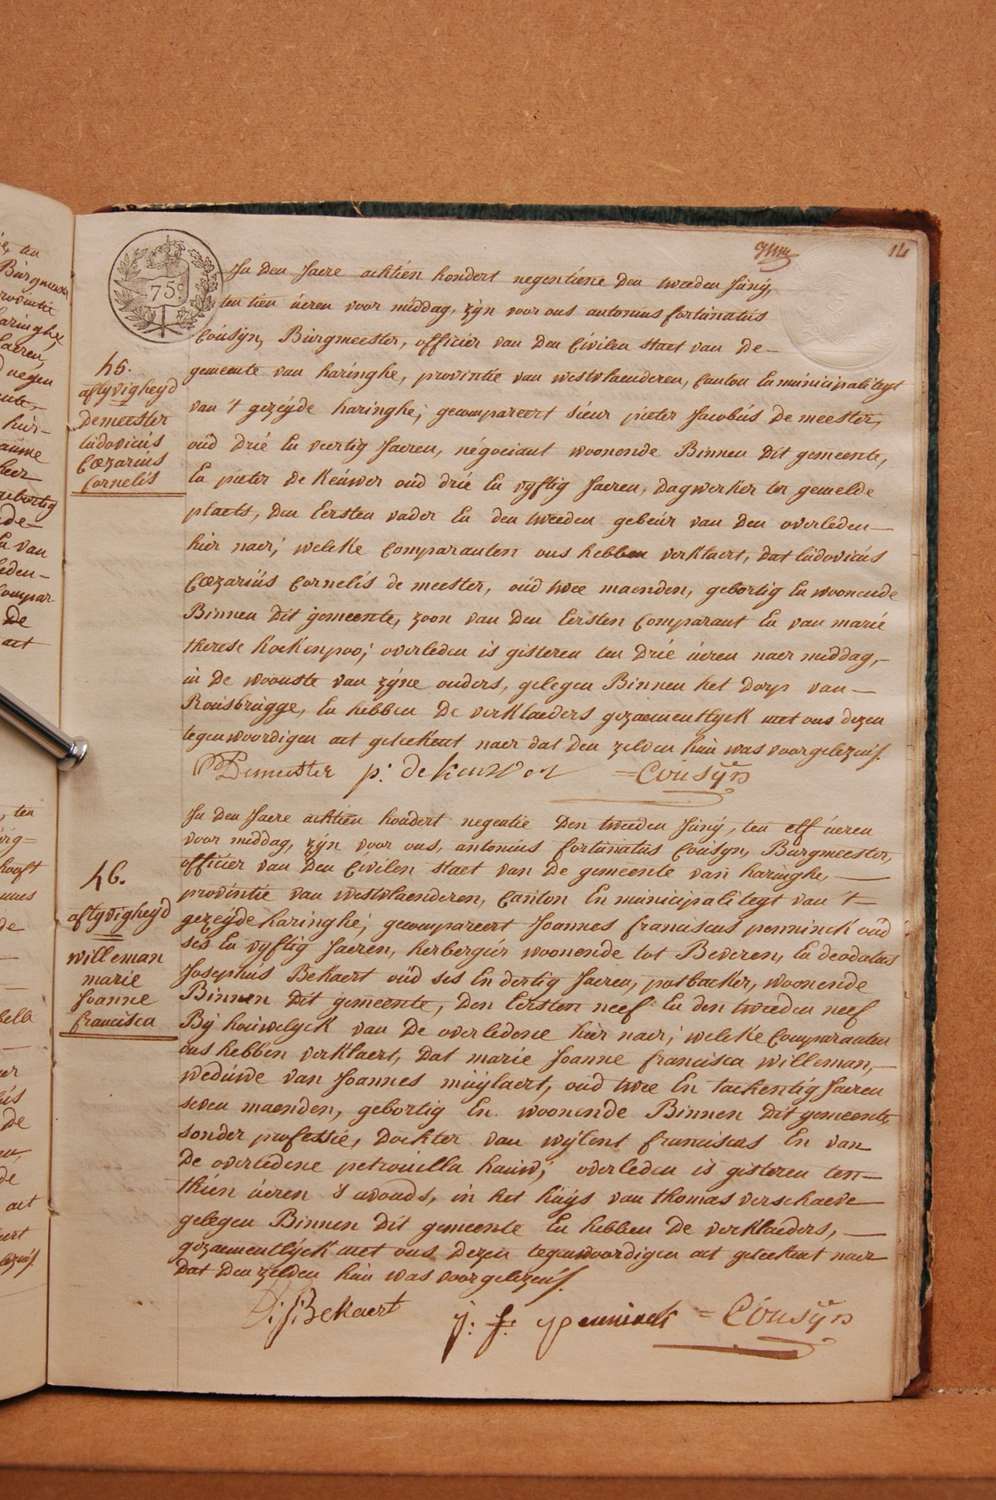 14
75
In den Jaere acktien hondert negentiene den tweeden Juny,
ten tien ueren voor middag, zyn voor ons antonius fortunatus
Cousyn, Burgmeester, officier van den Civilen staet van de
gemeente van haringhe, provintie van westvlaenderen, Canton En municipaliteyt
van 't gezeyde haringhe; gecompareert sieur pieter Jacobus De meester,
oud drie En veertig Jaeren, négociant woonende Binnen dit gemeente,
En pieter de Keuwer oud drie En vyftig Jaeren, dagwerker ter gemelde
plaets, den Eersten vader En den tweeden gebeur van den overleden
hier naer; welcke Comparanten ons hebben verklaert, dat ludovicus
Cæzarius Cornelis de meester, oud twee maenden, gebortig En woonende
Binnen dit gemeente, zoon van den Eersten Comparant En van marie
therese hockenpoo; overleden is gisteren ten drie ueren naer middag,
in de woonste van zyne ouders, gelegen Binnen het dorp van
Rousbrugge, En hebben De verklaeders gezaementlyck met ons dezen
tegenwoordigen act geteekent naer dat den zelven hun was voorgelezen.
45.
aflyvigheyd
Demeester
ludovicus
Cæzarius
Cornelis
PDemeester p: de Keuwer = Cousyn
In den Jaere acktien hondert negentie Den tweeden Juny, ten elf ueren
voor middag, zyn voor ons, antonius fortunatus Cousyn, Burgmeester,
officier van den Civilen staet van De gemeente van haringhe,
provintie van westvlaenderen, Canton En municipaliteyt van 't
gezeyde haringhe; gecompareert Joannes franciscus penninck oud
ses En vyftig Jaeren, herbergier woonende tot Beveren, En deodatus
Josephus Bekaert oud ses En dertig Jaeren, potbacker, woonende
Binnen dit gemeente, Den Eersten neef En den tweeden neef
By houwelyck van De overledene hier naer; welcke Comparanten
ons hebben verklaert, dat marie Joanne francisca willeman,
weduwe van Joannes muylaert, oud twee En tachentig Jaeren
seven maenden, gebortig En woonende Binnen dit gemeente
sonder professie, dochter van wylent franciscus En van
De overledene petronilla hauw; overleden is gisteren ten
thien ueren 's avonds, in het huys van thomas verschaeve
gelegen Binnen dit gemeente En hebben De verklaeders,
gezaementlyck met ons Dezen tegenwoordigen act geteekent naer
Dat Den zelven hun was voorgelezen.
46.
aflyvigheyd
willeman
marie
Joanne
francisca
D: J: Bekaert j: f: penninck = Cousyn